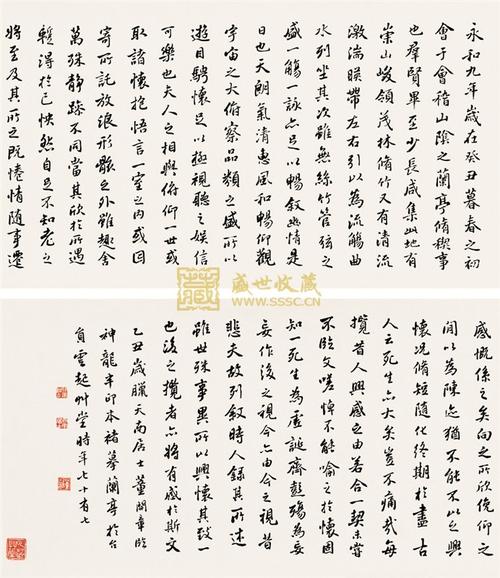 永和九年歲在癸丑暮春之初
會于會稽山陰之蘭亭脩禊事
也群賢畢至少長咸集此地有
崇山峻領茂林脩竹又有清流
激湍暎帶左右引以為流觴曲
水列坐其次雖無絲竹管弦之
盛一觴一詠亦足以暢叙幽情是
日也天朗氣清惠風和暢仰觀
宇宙之大俯察品類之盛所以
遊目騁懷足以極視聽之娛信
可樂也夫人之相與俯仰一世或
取諸懷抱悟言一室之內或因
寄所託放浪形骸之外雖趣舍
萬殊靜躁不同當其欣於所遇
蹔得於己怏然自足不知老之
將至及其所之既惓情隨事遷
感慨係之矣向之所欣俛仰之
閒以為陳迹猶不能不以之興
懷況脩短隨化終期於盡古
人云死生亦大矣豈不痛哉每
攬昔人興感之由若合一契未嘗
不臨文嗟悼不能喻之於懷固
知一死生為虛誕齊彭殤為妄
妄作後之視今亦由今之視昔
悲夫故列叙時人錄其所述
雖世殊事異所以興懷其致一
也後之攬者亦將有感於斯文
乙丑歲臘天南居士董開章臨
神龍半印本褚摹蘭亭於台
雲艸堂時年七十有七
藏
盛世收藏
WWW.SSSC.CN